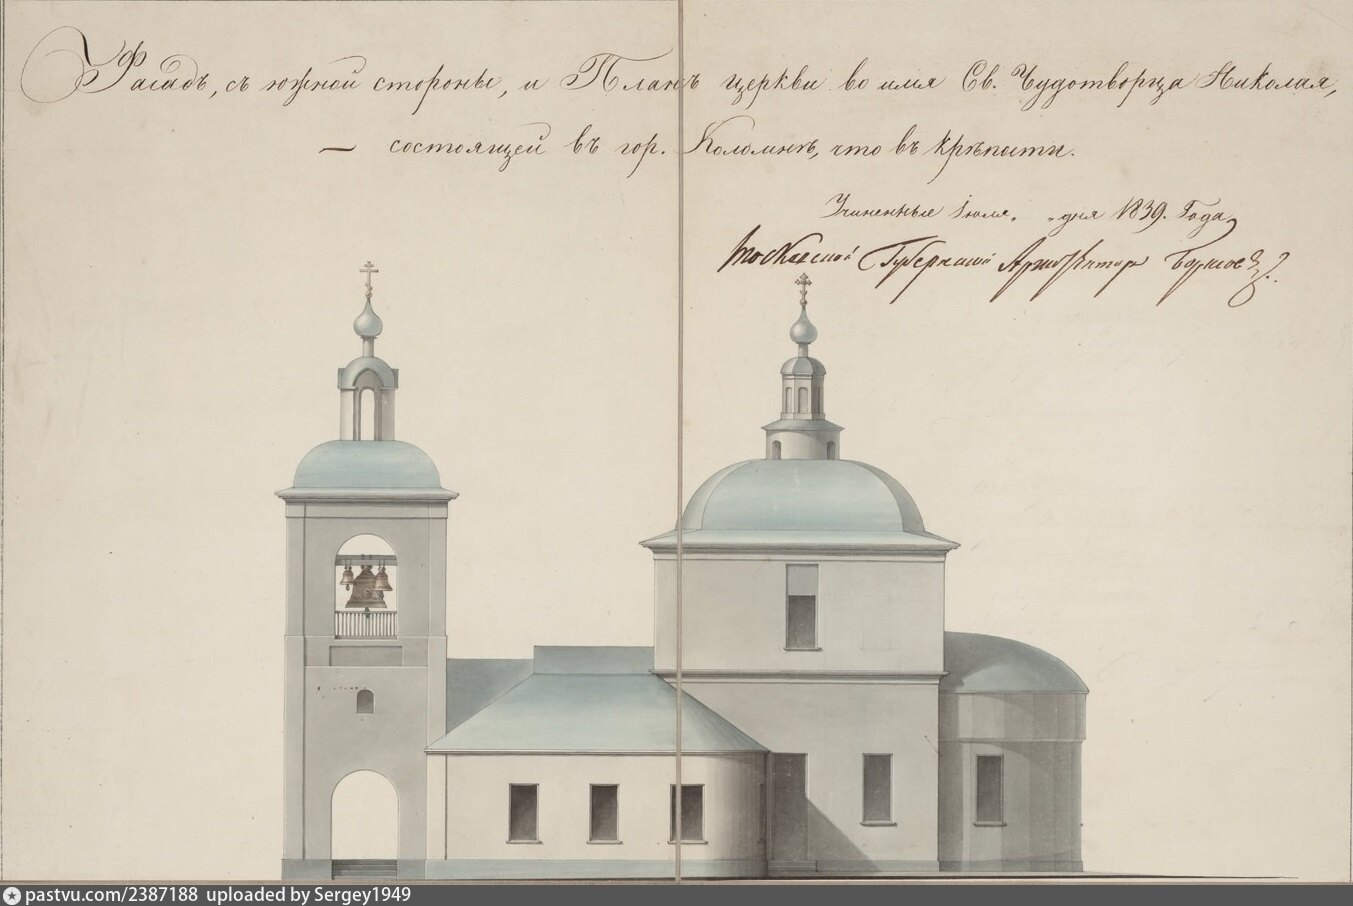 Фасадъ, съ южной стороны, и Планъ церкви во имя Св. Чудотворца Николая,
— состоящей въ гор. Коломнѣ, что въ крѣпости.
Учиненные Iюля, „дня 1839. Года,
Московской Губернскiй Архитекторъ
pastvu.com/2387188 uploaded by Sergey1949